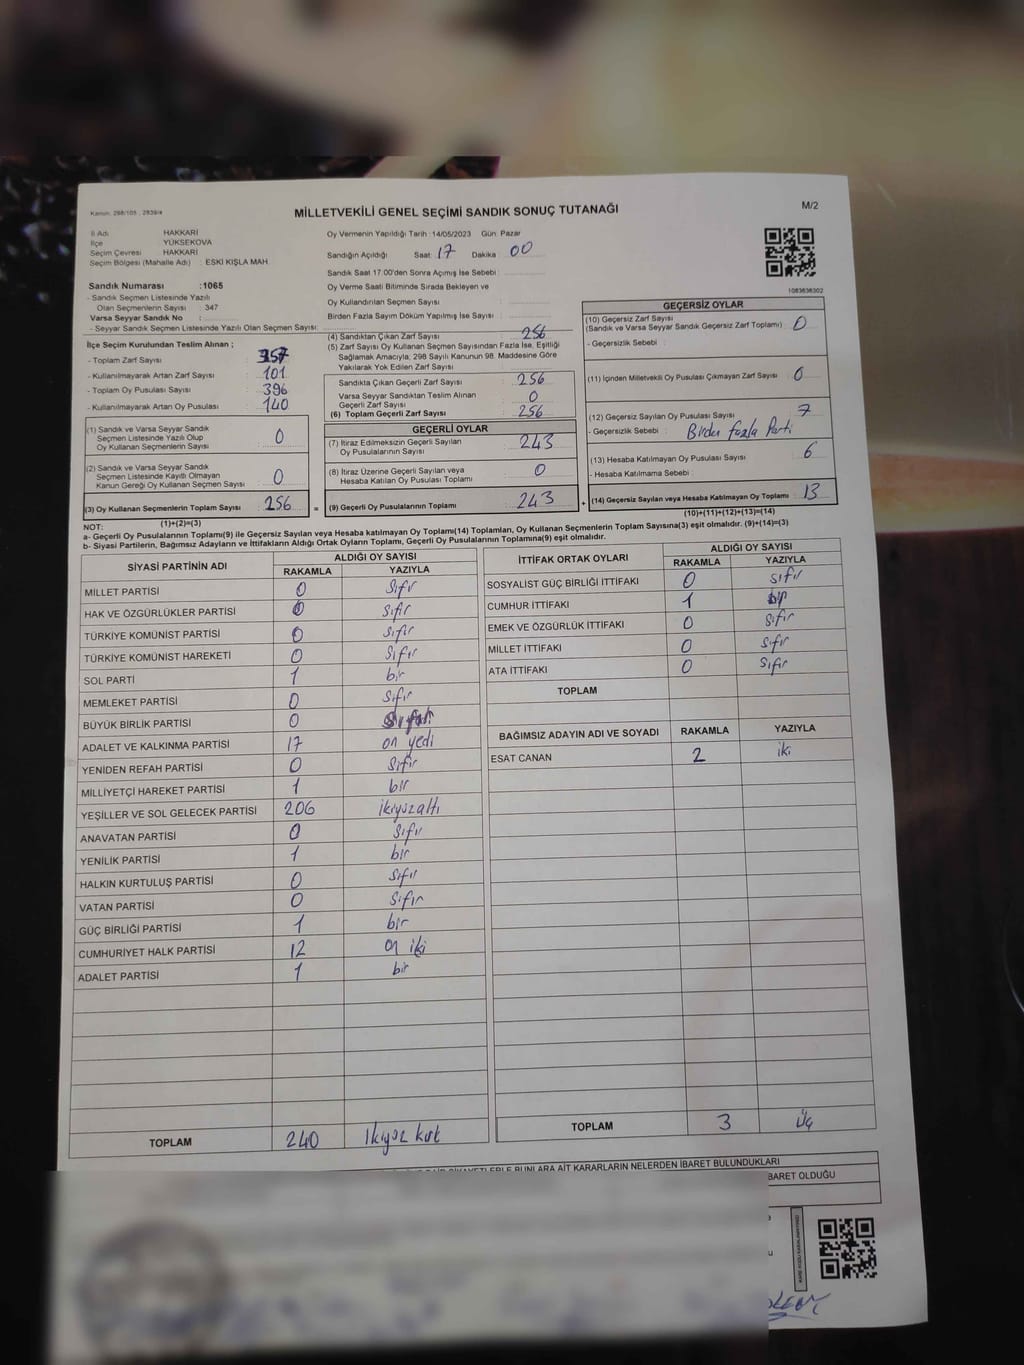 Kanun: 298/105 , 2839/4
MİLLETVEKİLİ GENEL SEÇİMİ SANDIK SONUÇ TUTANAĞI
M/2
İl Adı HAKKARİ
İlçe YÜKSEKOVA
Seçim Çevresi HAKKARİ
Seçim Bölgesi (Mahalle Adı) : ESKİ KIŞLA MAH.
Sandık Numarası :1065
- Sandık Seçmen Listesinde Yazılı
Olan Seçmenlerin Sayısı : 347
Varsa Seyyar Sandık No :
- Seyyar Sandık Seçmen Listesinde Yazılı Olan Seçmen Sayısı:
Oy Vermenin Yapıldığı Tarih :14/05/2023 Gün: Pazar
Sandığın Açıldığı Saat: 17 Dakika : 00
Sandık Saat 17.00'den Sonra Açılmış İse Sebebi :
Oy Verme Saati Bitiminde Sırada Bekleyen ve
Oy Kullandırılan Seçmen Sayısı :
Birden Fazla Sayım Döküm Yapılmış İse Sayısı :
1083636302
İlçe Seçim Kurulundan Teslim Alınan ;
- Toplam Zarf Sayısı : 357
- Kullanılmayarak Artan Zarf Sayısı : 101
- Toplam Oy Pusulası Sayısı : 396
- Kullanılmayarak Artan Oy Pusulası : 140
(1) Sandık ve Varsa Seyyar Sandık
Seçmen Listesinde Yazılı Olup
Oy Kullanan Seçmenlerin Sayısı : 0
(2) Sandık ve Varsa Seyyar Sandık
Seçmen Listesinde Kayıtlı Olmayan
Kanun Gereği Oy Kullanan Seçmen Sayısı : 0
(3) Oy Kullanan Seçmenlerin Toplam Sayısı : 256
(1)+(2)=(3)
(4) Sandıktan Çıkan Zarf Sayısı : 256
(5) Zarf Sayısı Oy Kullanan Seçmen Sayısından Fazla İse, Eşitliği
Sağlamak Amacıyla, 298 Sayılı Kanunun 98. Maddesine Göre
Yakılarak Yok Edilen Zarf Sayısı :
Sandıkta Çıkan Geçerli Zarf Sayısı : 256
Varsa Seyyar Sandıktan Teslim Alınan
Geçerli Zarf Sayısı : 0
(6) Toplam Geçerli Zarf Sayısı : 256
GEÇERLİ OYLAR
(7) İtiraz Edilmeksizin Geçerli Sayılan
Oy Pusulalarının Sayısı : 243
(8) İtiraz Üzerine Geçerli Sayılan veya
Hesaba Katılan Oy Pusulası Toplamı : 0
= (9) Geçerli Oy Pusulalarının Toplamı : 243
GEÇERSİZ OYLAR
(10) Geçersiz Zarf Sayısı
(Sandık ve Varsa Seyyar Sandık Geçersiz Zarf Toplamı) : 0
- Geçersizlik Sebebi :
(11) İçinden Milletvekili Oy Pusulası Çıkmayan Zarf Sayısı : 0
(12) Geçersiz Sayılan Oy Pusulası Sayısı : 7
- Geçersizlik Sebebi : Birden fazla Parti
(13) Hesaba Katılmayan Oy Pusulası Sayısı : 6
- Hesaba Katılmama Sebebi :
+ (14) Geçersiz Sayılan veya Hesaba Katılmayan Oy Toplamı : 13
(10)+(11)+(12)+(13)=(14)
NOT:
a- Geçerli Oy Pusulalarının Toplamı(9) ile Geçersiz Sayılan veya Hesaba katılmayan Oy Toplamı(14) Toplamları, Oy Kullanan Seçmenlerin Toplam Sayısına(3) eşit olmalıdır. (9)+(14)=(3)
b- Siyasi Partilerin, Bağımsız Adayların ve İttifakların Aldığı Ortak Oyların Toplamı, Geçerli Oy Pusulalarının Toplamına(9) eşit olmalıdır.
SİYASİ PARTİNİN ADI ALDIĞI OY SAYISI
RAKAMLA YAZIYLA
MİLLET PARTİSİ 0 sıfır
HAK VE ÖZGÜRLÜKLER PARTİSİ 0 sıfır
TÜRKİYE KOMÜNİST PARTİSİ 0 sıfır
TÜRKİYE KOMÜNİST HAREKETİ 0 sıfır
SOL PARTİ 1 bir
MEMLEKET PARTİSİ 0 sıfır
BÜYÜK BİRLİK PARTİSİ 0
ADALET VE KALKINMA PARTİSİ 17 on yedi
YENİDEN REFAH PARTİSİ 0 sıfır
MİLLİYETÇİ HAREKET PARTİSİ 1 bir
YEŞİLLER VE SOL GELECEK PARTİSİ 206 ikiyüzaltı
ANAVATAN PARTİSİ 0 sıfır
YENİLİK PARTİSİ 1 bir
HALKIN KURTULUŞ PARTİSİ 0 sıfır
VATAN PARTİSİ 0 sıfır
GÜÇ BİRLİĞİ PARTİSİ 1 bir
CUMHURİYET HALK PARTİSİ 12 on iki
ADALET PARTİSİ 1 bir
TOPLAM 240 ikiyüz kırk
İTTİFAK ORTAK OYLARI ALDIĞI OY SAYISI
RAKAMLA YAZIYLA
SOSYALİST GÜÇ BİRLİĞİ İTTİFAKI 0 sıfır
CUMHUR İTTİFAKI 1 bir
EMEK VE ÖZGÜRLÜK İTTİFAKI 0 sıfır
MİLLET İTTİFAKI 0 sıfır
ATA İTTİFAKI 0 sıfır
TOPLAM
BAĞIMSIZ ADAYIN ADI VE SOYADI RAKAMLA YAZIYLA
ESAT CANAN 2 iki
TOPLAM 3 üç
BUNLARA AİT KARARLARIN NELERDEN İBARET BULUNDUKLARI
BARET OLDUĞU